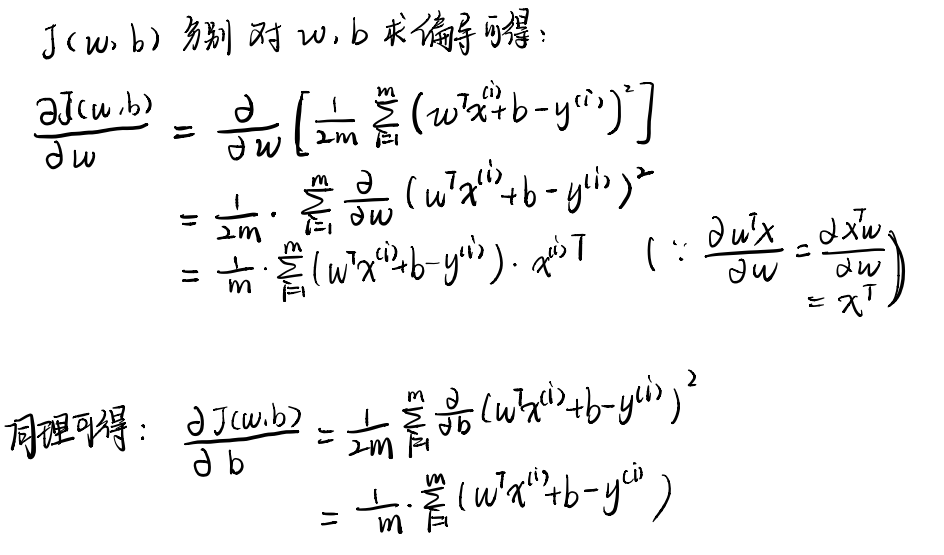 J(w, b) 分别 对 w, b 求偏导可得:
∂J(w,b)/∂w = ∂/∂w [ 1/2m ∑_{i=1}^{m} (w^T x^{(i)} + b - y^{(i)})^2 ]
= 1/2m · ∑_{i=1}^{m} ∂/∂w (w^T x^{(i)} + b - y^{(i)})^2
= 1/m · ∑_{i=1}^{m} (w^T x^{(i)} + b - y^{(i)}) · x^{(i)T} (∵ ∂w^T x/∂w = ∂x^T w/∂w
= x^T)
同理可得: ∂J(w,b)/∂b = 1/2m ∑_{i=1}^{m} ∂/∂b (w^T x^{(i)} + b - y^{(i)})^2
= 1/m · ∑_{i=1}^{m} (w^T x^{(i)} + b - y^{(i)})